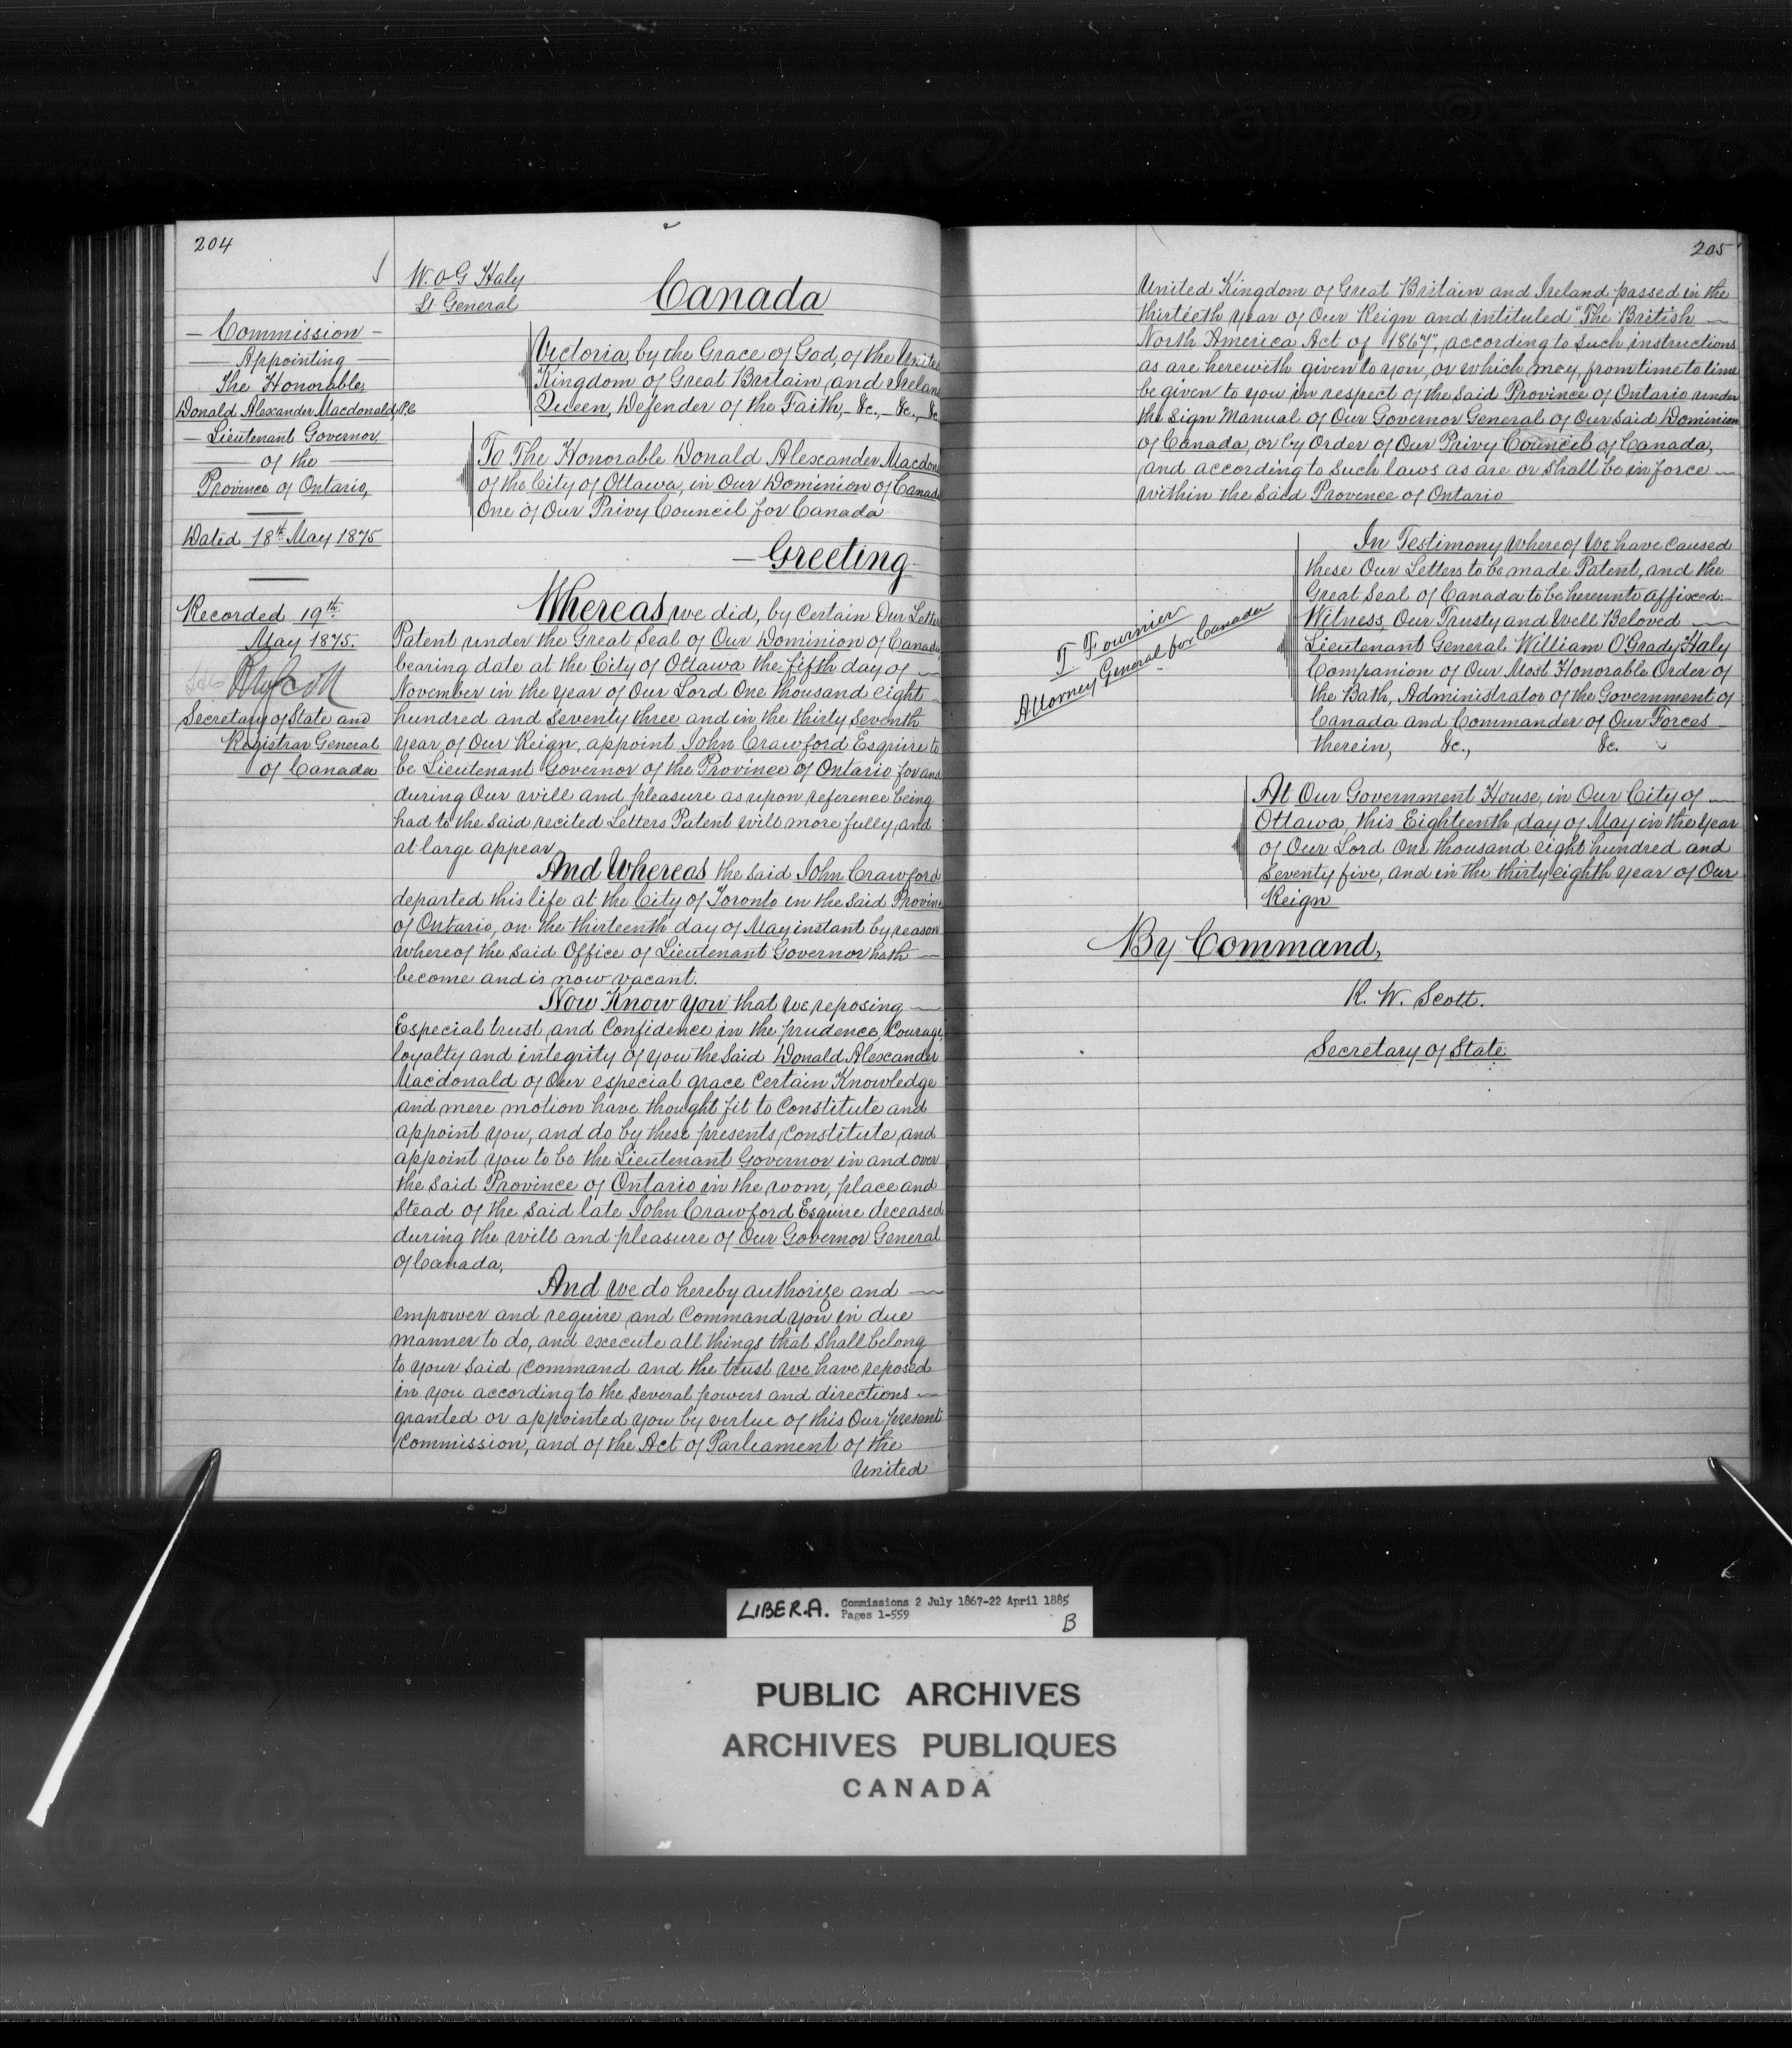 204
W. O'G Haly
Lt General
Canada
— Commission —
— Appointing —
The Honorable
Donald Alexander Macdonald, P.C
— Lieutenant Governor
— of the —
Province of Ontario,
Dated 18th May 1875
Recorded 19th
May 1875.
RWScott
Secretary of State and
Registrar General
of Canada
Victoria, by the Grace of God, of the United
Kingdom of Great Britain and Ireland
Queen, Defender of the Faith, — &c., — &c., — &c
To The Honorable Donald Alexander Macdon
of the City of Ottawa, in Our Dominion of Canada
One of Our Privy Council for Canada
— Greeting —
Whereas we did, by Certain Our Letters
Patent under the Great Seal of Our Dominion of Canada,
bearing date at the City of Ottawa the fifth day of —
November in the year of Our Lord One thousand eight
hundred and Seventy three and in the thirty Seventh
Year of Our Reign, appoint John Crawford Esquire to
be Lieutenant Governor of the Province of Ontario for and
during Our will and pleasure as upon reference being
had to the Said recited Letters Patent will more fully and
at large appear
And Whereas the said John Crawford
departed this life at the City of Toronto in the Said Province
of Ontario, on the thirteenth day of May instant by reason
whereof the said Office of Lieutenant Governor hath —
become and is now vacant.
Now Know You that we reposing —
Especial trust and Confidence in the prudence, Courage,
loyalty and integrity of you the Said Donald Alexander
Macdonald of Our especial grace Certain Knowledge
and mere motion have thought fit to Constitute and
appoint you, and do by these presents Constitute and
appoint you to be the Lieutenant Governor in and over
the said Province of Ontario in the room, place and
Stead of the Said late John Crawford Esquire deceased
during the will and pleasure of Our Governor General
of Canada,
And we do hereby authorize and —
empower and require and Command you in due
manner to do, and execute all things that Shall belong
to your Said Command and the trust we have reposed
in you according to the Several powers and directions —
granted or appointed you by virtue of this Our present
Commission, and of the Act of Parliament of the
United
205
United Kingdom of Great Britain and Ireland passed in the
thirtieth year of Our Reign and intituled "The British —
North America Act of 1867", according to Such instructions
as are herewith given to you, or which may, from time to time
be given to you in respect of the said Province of Ontario under
the Sign Manual of Our Governor General of Our Said Dominion
of Canada, or by Order of Our Privy Council of Canada,
and according to Such laws as are or Shall be in force —
within the Said Province of Ontario
In Testimony Whereof We have Caused
these Our Letters to be made Patent, and the
Great Seal of Canada to be hereunto affixed:—
Witness, Our Trusty and Well Beloved —
Lieutenant General William O'Grady Haly
Companion of Our Most Honorable Order of
the Bath, Administrator of the Government of
Canada and Commander of Our Forces —
therein, &c., &c.
T Fournier
Attorney General for Canada
At Our Government House, in Our City of —
Ottawa, this Eighteenth day of May in the Year
of Our Lord One thousand eight hundred and
Seventy five, and in the thirty eighth Year of Our
Reign
By Command,
R. W. Scott.
Secretary of State
LIBER.A. Commissions 2 July 1867-22 April 1885
Pages 1-559
B
PUBLIC ARCHIVES
ARCHIVES PUBLIQUES
CANADA